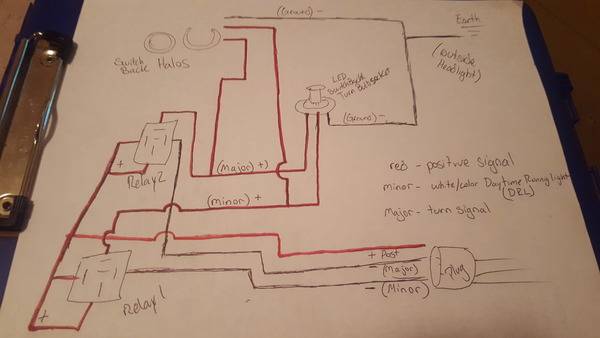 (Ground) -
Earth
(outside
Headlight)
Switch
Back Halos
LED
Switchback
Turn Bulb socket
(Ground) -
+
Relay 2
(Major) +)
(minor) +
red - positive signal
minor - white/color Daytime Runnylight
(DRL)
Major - turn signal
+ Post
- (Major)
- (Minor)
plug
+
Relay 1